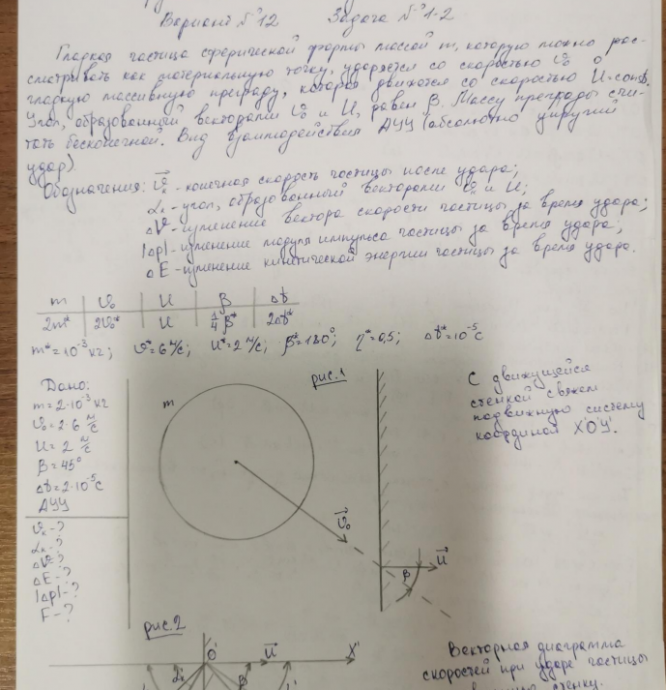 Вариант №12 Задача №1-2
Гладкая частица сферической формы массой m, которую можно рас-
сматривать как материальную точку, ударяется со скоростью v₀ о
гладкую массивную преграду, которая движется со скоростью U=const.
Угол, образованный векторами v₀ и U, равен β. Массу преграды счи-
тать бесконечной. Вид взаимодействия АУУ (абсолютно упругий
удар)
Обозначения: v⃗ₖ - конечная скорость частицы после удара;
αₖ - угол, образованный векторами и U;
ΔV - изменение вектора скорости частицы за время удара;
|Δp| - изменение модуля импульса частицы за время удара;
ΔE - изменение кинетической энергии частицы за время удара.
m v₀ U β Δt
2m* 2v₀* U ¼β* 2Δt*
m*=10⁻³ кг; v*=6 м/с; U*=2 м/с; β*=180°; η*=0,5; Δt*=10⁻⁵ с
Дано:
m=2·10⁻³ кг
v₀=2·6 м/с
U=2 м/с
β=45°
Δt=2·10⁻⁵ с
АУУ
vₖ-?
αₖ-?
ΔV-?
ΔE-?
|Δp|-?
F-?
рис.1
m
v⃗₀
U⃗
β
С движущейся
стенкой свяжем
подвижную систему
координат X'O'Y'.
рис.2
O'
U⃗
X'
αₖ
β
Векторная диаграмма
скоростей при ударе частицы
стенку.